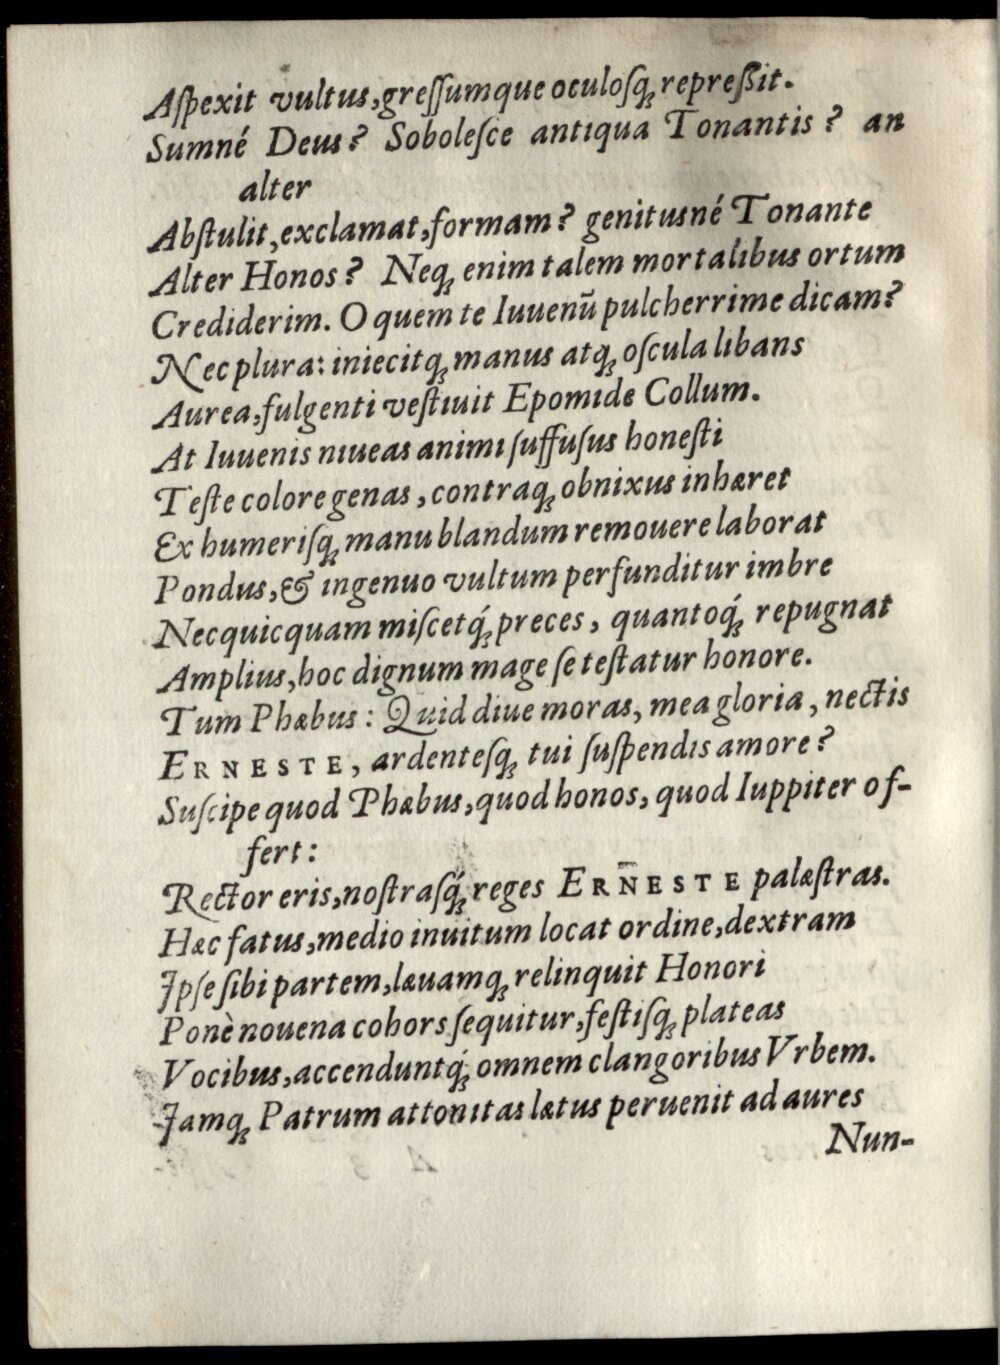 Aſpexit vultus, greſſumque oculoſq́ꝫ repreßit.
Sumné Deus? Soboleſce antiqua Tonantis? an
alter
Abſtulit, exclamat, formam? genitusné Tonante
Alter Honos? Neqꝫ enim talem mortalibus ortum
Crediderim. O quem te Iuuenũ pulcherrime dicam?
Nec plura: iniecitqꝫ manus atqꝫ oſcula libans
Aurea, fulgenti veſtiuit Epomide Collum.
At Iuuenis niueas animi ſuffuſus honeſti
Teſte colore genas, contraqꝫ obnixus inhæret
Ex humeriſqꝫ manu blandum remouere laborat
Pondus, & ingenuo vultum perfunditur imbre
Necquicquam miſcetq́ꝫ preces, quantoq́ꝫ repugnat
Amplius, hoc dignum mage ſe teſtatur honore.
Tum Phæbus: Quid diue moras, mea gloria, nectis
ERNESTE, ardenteſqꝫ tui ſuſpendis amore?
Suſcipe quod Phæbus, quod honos, quod Iuppiter of-
fert:
Rector eris, noſtraſq́ꝫ reges ERN̅ESTE palæſtras.
Hæc fatus, medio inuitum locat ordine, dextram
Ipſe ſibi partem, læuamqꝫ relinquit Honori
Ponè nouena cohors ſequitur, feſtiſqꝫ plateas
Vocibus, accenduntq́ꝫ omnem clangoribus Vrbem.
Iamqꝫ Patrum attonitas lætus peruenit ad aures
Nun-